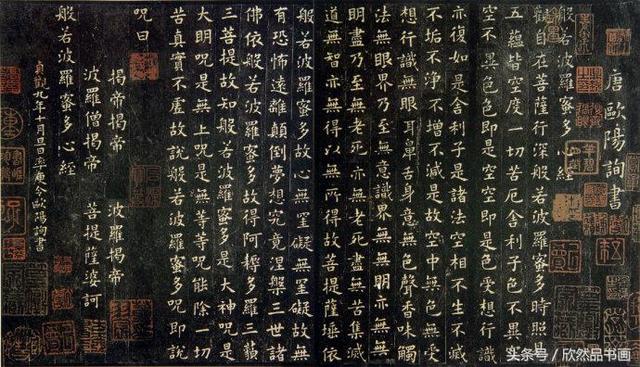 唐歐陽詢書
般若波羅蜜多心經
觀自在菩薩行深般若波羅蜜多時照見
五蘊皆空度一切苦厄舍利子色不異
空空不異色色即是空空即是色受想行識
亦復如是舍利子是諸法空相不生不滅
不垢不淨不增不減是故空中無色無受
想行識無眼耳鼻舌身意無色聲香味觸
法無眼界乃至無意識界無無明亦無無
明盡乃至無老死亦無老死盡無苦集滅
道無智亦無得以無所得故菩提薩埵依
般若波羅蜜多故心無罣礙無罣礙故無
有恐怖遠離顛倒夢想究竟涅槃三世諸
佛依般若波羅蜜多故得阿耨多羅三藐
三菩提故知般若波羅蜜多是大神呪是
大明呪是無上呪是無等等呪能除一切
苦真實不虛故說般若波羅蜜多呪即說
呪曰
揭帝揭帝 波羅揭帝
波羅僧揭帝 菩提薩婆訶
般若波羅蜜多心經
貞觀九年十月旦日率更令歐陽詢書
头条号／欣然品书画